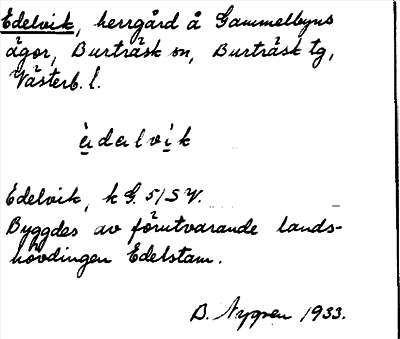 Edelvik, herrgård å Gammelbyns
ägor, Burträsk sn, Burträsk tg,
Västerb. l.
èdalvik
Edelvik, k G. 51 SV.
Byggdes av förutvarande lands-
hövdingen Edelstam.
B. Nygren 1933.